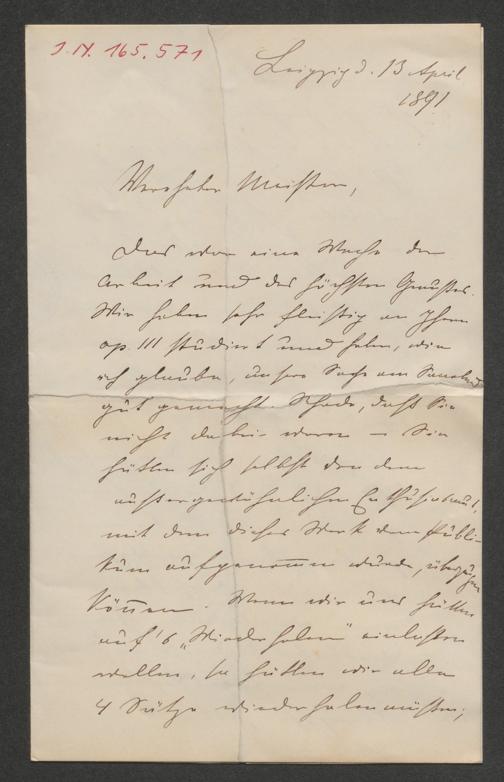 J.N. 165.571
Leipzig d. 13 April
1891
Verehrter Meister,
Das war eine Woche der
Arbeit und des höchsten Genusses.
Wir haben sehr fleißig an Ihrem
op. 111 studiert und haben, wie
ich glaube, unsere Sache am Sonnabend
gut gemacht. Schade, daß Sie
nicht dabei waren – Sie
hätten sich selbst von dem
außergewöhnlichen Enthusiasmus,
mit dem dieses Werk vom Publi-
kum aufgenommen wurde, überzeugen
können. Wenn wir uns hätten
auf's „Wiederholen" einlassen
wollen, so hätten wir alle
4 Sätze wiederholen müssen;